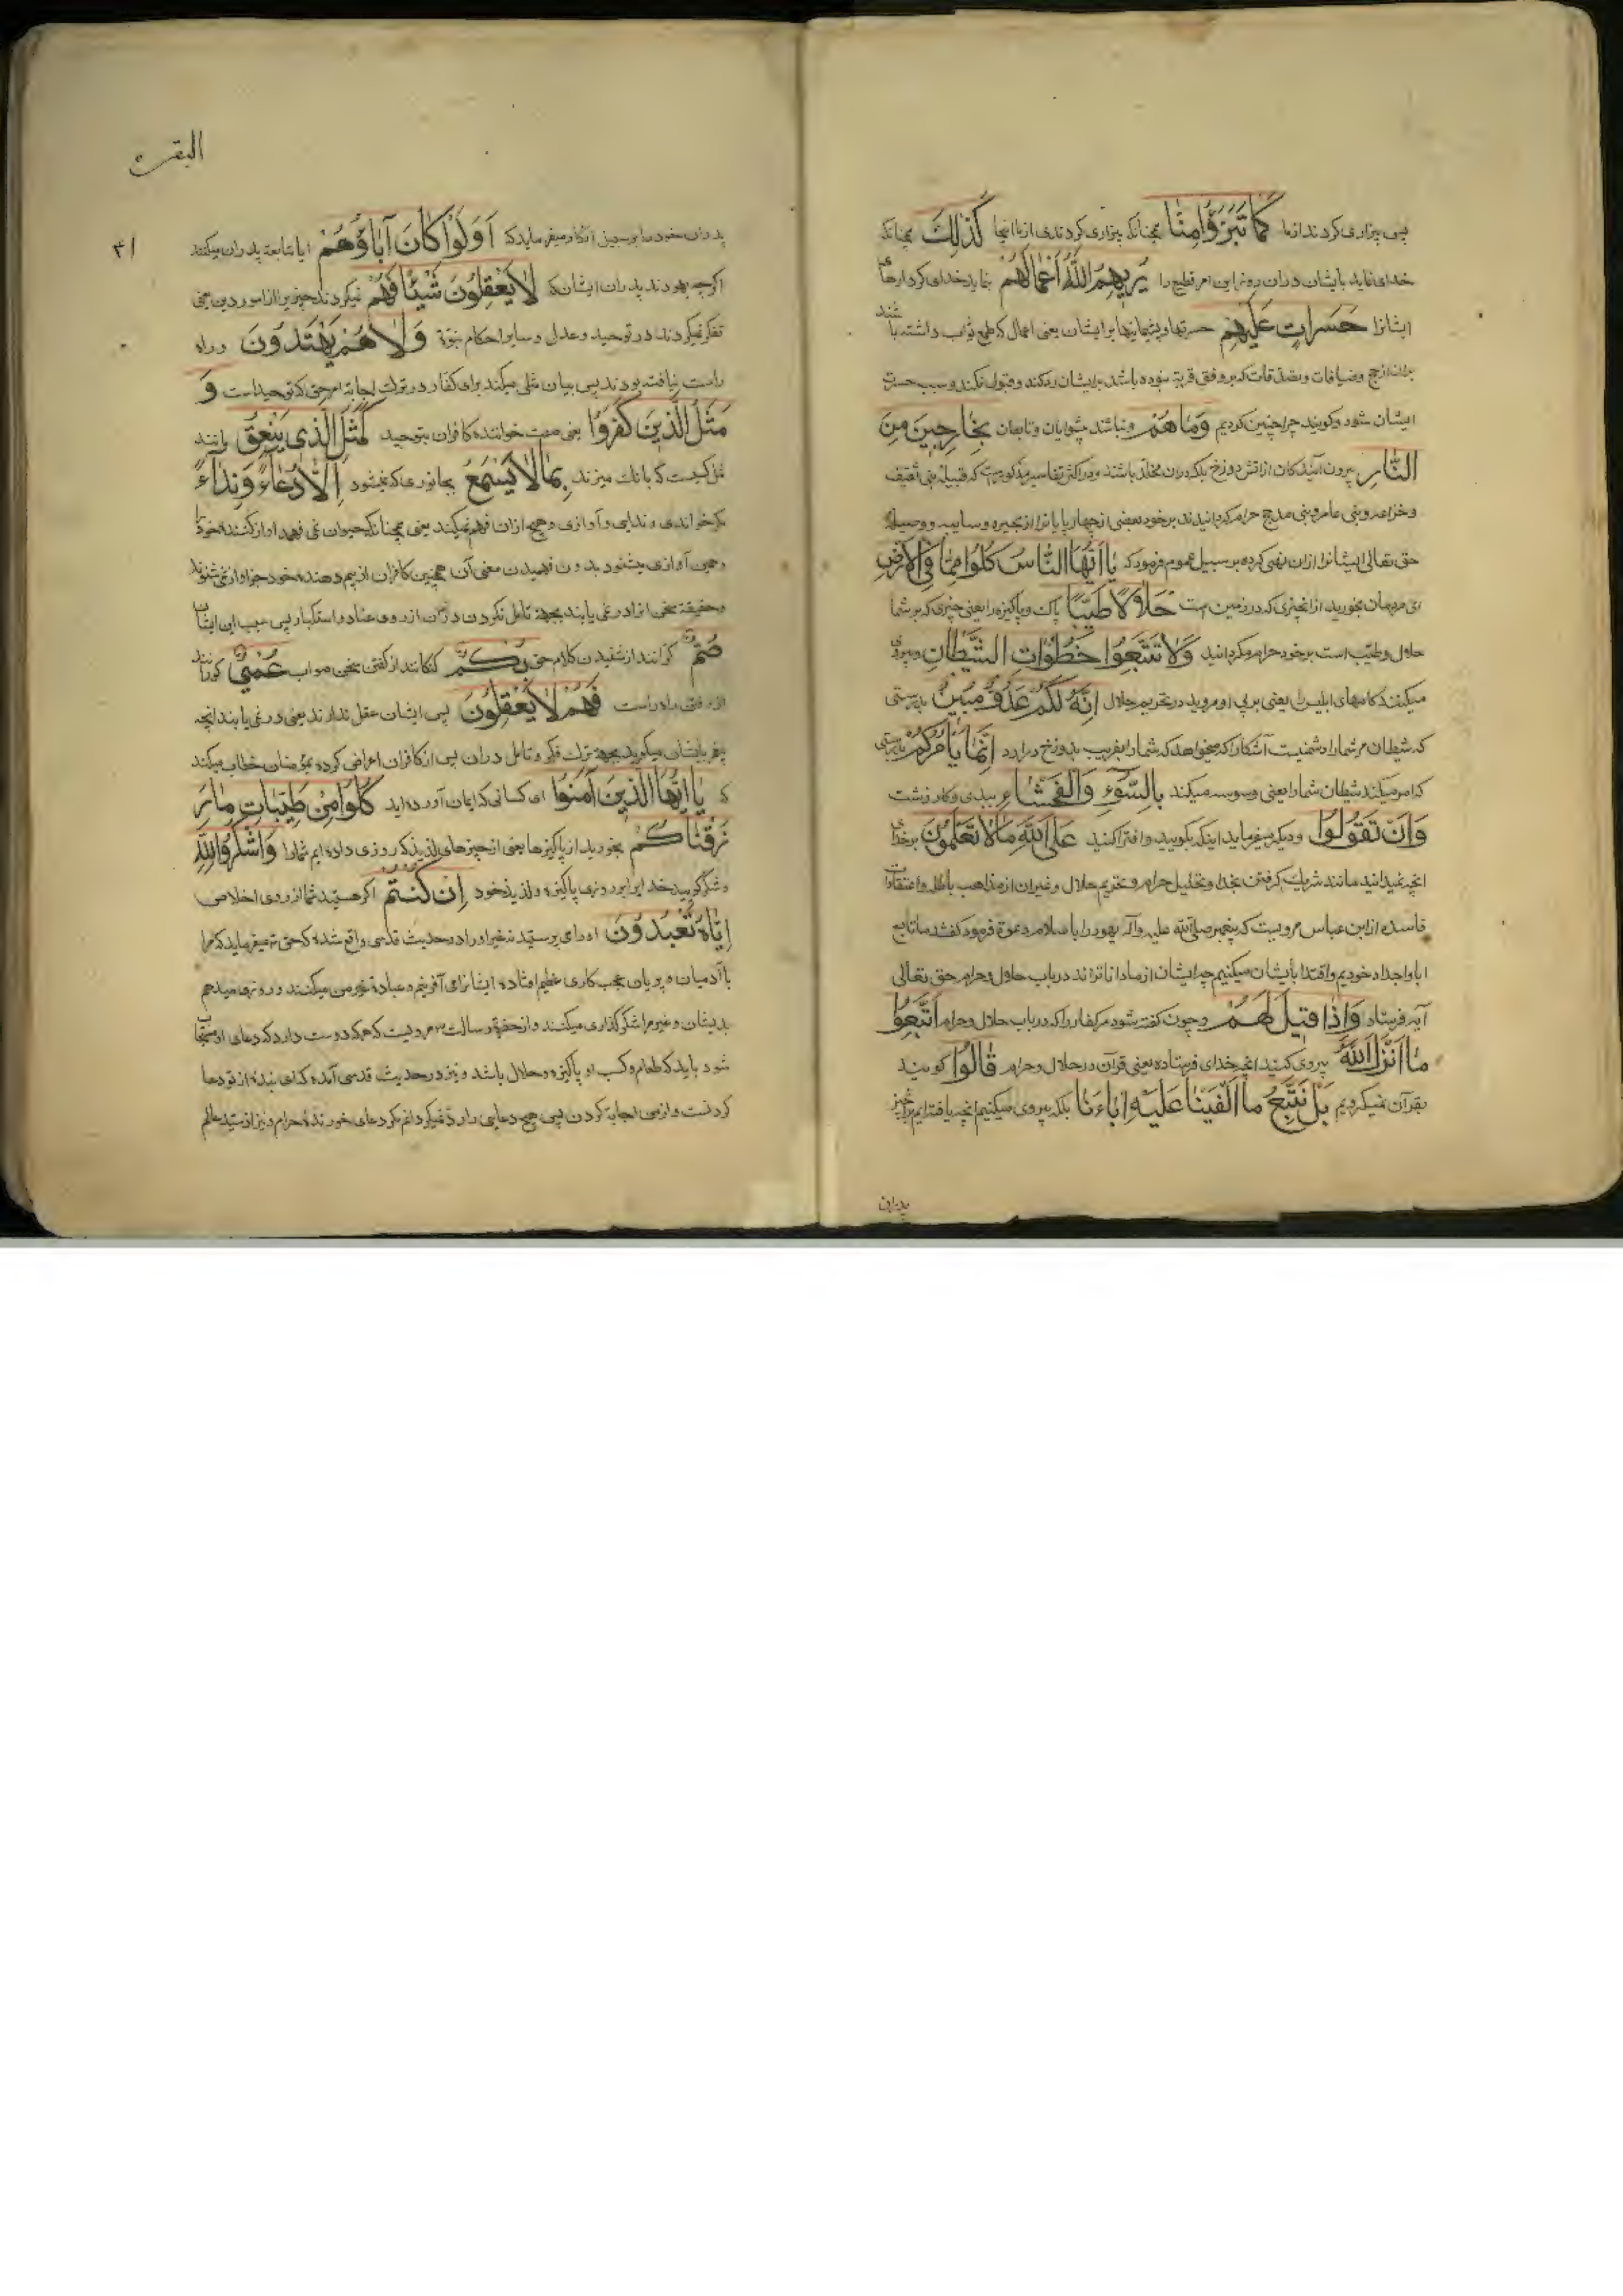 پس بیزاری کردند از ما كَمَا تَبَرَّؤُا مِنَّا همچنانکه بیزاری کردندی از ما اینجا كَذٰلِكَ همچنانکه
خدای نماید بایشان در آن روز این امر فظیع را يُرِيهِمُ اللّٰهُ أَعْمَالَهُمْ بنماید خدای کردارهای
ایشانرا حَسَرَاتٍ عَلَيْهِمْ حسرتها و پشیمانیها بر ایشان یعنی اعمال که طمع ثواب داشته باشند
بران از حج و ضیافات و تصدقات که بر وفق قربة نبوده باشد بر ایشان رد کنند و قبول نکنند و سبب حسرت
ایشان شود و گویند چرا چنین کردیم وَمَا هُمْ و نباشند پیشوایان و تابعان بِخَارِجِينَ مِنَ
النَّارِ بیرون آیندکان از آتش دوزخ بلکه در آن مخلد باشند و در اکثر تفاسیر مذکورست که قبیله بنی ثقیف
و خزاعه و بنی عامر و بنی مدلج حرام گردانیدند بر خود بعضی از چهارپایانرا از بحیره و سایبه و وصیله
حق تعالی ایشانرا از آن نهی کرده بر سبیل عموم فرمود که يَا أَيُّهَا النَّاسُ كُلُوا مِمَّا فِي الْأَرْضِ
ای مردمان بخورید از آنچیزی که در زمین است حَلَالًا طَيِّبًا پاک و پاکیزه را یعنی چیزی که بر شما
حلال و طیب است بر خود حرام مگردانید وَلَا تَتَّبِعُوا خُطُوَاتِ الشَّيْطَانِ و پیروی
میکنید گامهای ابلیس را یعنی بر پی او مروید در تحریم حلال إِنَّهُ لَكُمْ عَدُوٌّ مُبِينٌ بدرستی
که شیطان مر شما را دشمنیست آشکارا که میخواهد که شما را بفریب بدوزخ درآرد إِنَّمَا يَأْمُرُكُمْ بدرستی
که امر میکند شیطان شما را یعنی وسوسه میکند بِالسُّوءِ وَالْفَحْشَاءِ ببدی و کار زشت
وَأَنْ تَقُولُوا و دیگر میفرماید اینکه بگویید و افترا کنید عَلَى اللّٰهِ مَا لَا تَعْلَمُونَ بر خدای
آنچه نمیدانید مانند شریک گرفتن بخدا و تحلیل حرام و تحریم حلال و غیر آن از مذاهب باطله و اعتقادات
فاسده از ابن عباس مرویست که پیغمبر صلی الله علیه و آله یهود را باسلام دعوة فرمود گفتند ما تابع
آبا و اجداد خودیم و اقتدا بایشان میکنیم چه ایشان از ما داناتراند در باب حلال و حرام حق تعالی
آیه فرستاد وَإِذَا قِيلَ لَهُمُ و چون گفته شود مر کفار را که در باب حلال و حرام اتَّبِعُوا
مَا أَنْزَلَ اللّٰهُ پیروی کنید آنچه خدای فرستاده یعنی قرآن در حلال و حرام قَالُوا گویند
بقرآن نمیگرویم بَلْ نَتَّبِعُ مَا أَلْفَيْنَا عَلَيْهِ اٰبَاءَنَا بلکه پیروی میکنیم آنچه یافته‌ایم بران چیز
پدران
البقرة
۳۱
پدران خود را بر سبیل انکار میفرماید که أَوَلَوْ كَانَ آبَاؤُهُمْ ایا متابعة پدران میکنند
اگرچه بودند پدران ایشان که لَا يَعْقِلُونَ شَيْئًا فهم نمیکردند چیزیرا از امور دین یعنی
تفکر نمیکردند در توحید و عدل و سایر احکام نبوة وَلَا هُمْ يَهْتَدُونَ و راه
راست نیافته بودند پس بیان مثلی میکند برای کفار در ترک اجابة امر حق که توحیدست وَ
مَثَلُ الَّذِينَ كَفَرُوا یعنی صفت خواننده کافران بتوحید كَمَثَلِ الَّذِي يَنْعِقُ مانند
مثل کسیست که بانک میزند بِمَا لَا يَسْمَعُ بجانوری که نمیشنود إِلَّا دُعَاءً وَنِدَاءً
مکر خواندی و ندایی و آوازی و هیچ از آن فهم نمیکند یعنی همچنانکه حیوان نمی فهمد آواز کننده خود را
و همین آوازی میشنود بدون فهمیدن معنی آن همچنین کافران از بیم دهنده خود جز آواز نمی شنوند
و حقیقة سخن او را در نمی یابند بجهة تامل نکردن در آن از روی عناد و استکبار پس سبب این ایشان
صُمٌّ کرانند از شنیدن کلام حق بُكْمٌ گنگانند از گفتن سخن صواب عُمْيٌ کورانند
از رفتن راه راست فَهُمْ لَا يَعْقِلُونَ پس ایشان عقل ندارند یعنی در نمی یابند آنچه
پیغمبر بایشان میگوید بجهة ترک فکر و تامل در آن پس از کافران اعراض کرده بمؤمنان خطاب میکند
که يَا أَيُّهَا الَّذِينَ آمَنُوا ای کسانی که ایمان آورده‌اید كُلُوا مِنْ طَيِّبَاتِ مَا رَ
زَقْنَاكُمْ بخورید از پاکیزها یعنی از چیزهای لذیذ که روزی داده‌ایم شما را وَاشْكُرُوا لِلّٰهِ
و شکر گویید خدایرا بر روزی پاکیزه و لذیذ خود إِنْ كُنْتُمْ اگر هستید شما از روی اخلاص
إِيَّاهُ تَعْبُدُونَ او را می پرستید نه غیر او را در حدیث قدسی واقع شده که حق تع میفرماید که مرا
با آدمیان و پریان عجب کاری عظیم افتاده ایشانرا می آفرینم و عبادة غیر من میکنند و روزی میدهم
بدیشان و غیر مرا شکرگذاری میکنند و از حضرة رسالت مرویست که هرکه دوست دارد که دعای او مستجاب
شود باید که طعام و کسب او پاکیزه و حلال باشد و نیز در حدیث قدسی آمده که ای بنده از تو دعا
کردنست و از من اجابة کردن پس هیچ دعایی را رد نمیگردانم مگر دعای خورنده حرام و نیز از سید عالم